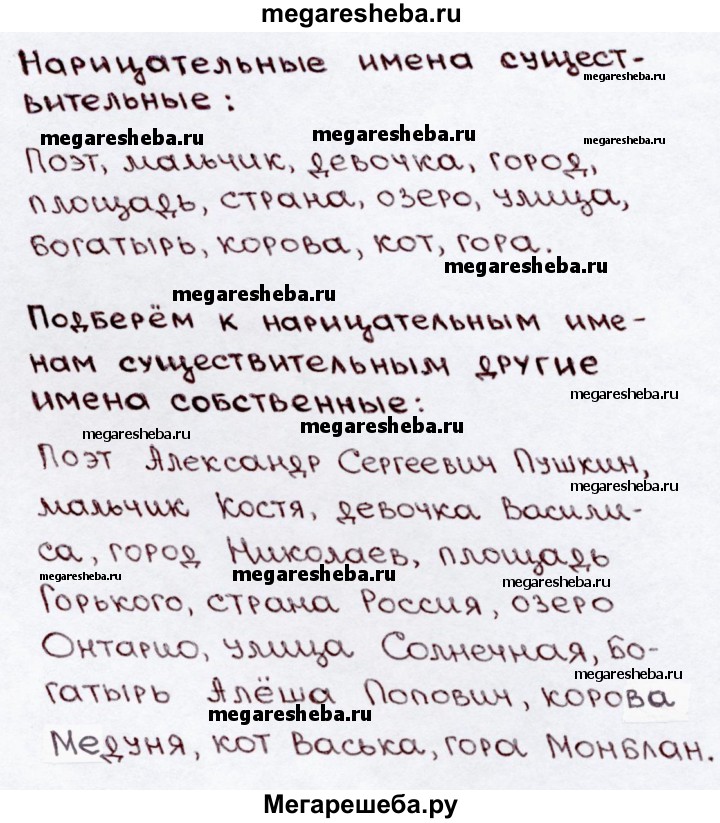 megaresheba.ru
Нарицательные имена сущест-
megaresheba.ru
вительные:
megaresheba.ru
megaresheba.ru
megaresheba.ru
Поэт, мальчик, девочка, город,
площадь, страна, озеро, улица,
богатырь, корова, кот, гора.
megaresheba.ru
megaresheba.ru
Подберём к нарицательным име-
нам существительным другие
megaresheba.ru
имена собственные:
megaresheba.ru
megaresheba.ru
Поэт Александр Сергеевич Пушкин,
megaresheba.ru
мальчик Костя, девочка Васили-
са, город Николаев, площадь
megaresheba.ru
megaresheba.ru
megaresheba.ru
Горького, страна Россия, озеро
Онтарио, улица Солнечная, бо-
megaresheba.ru
гатырь Алёша Попович, корова
megaresheba.ru
Медуня, кот Васька, гора Монблан.
Мегарешеба.ру